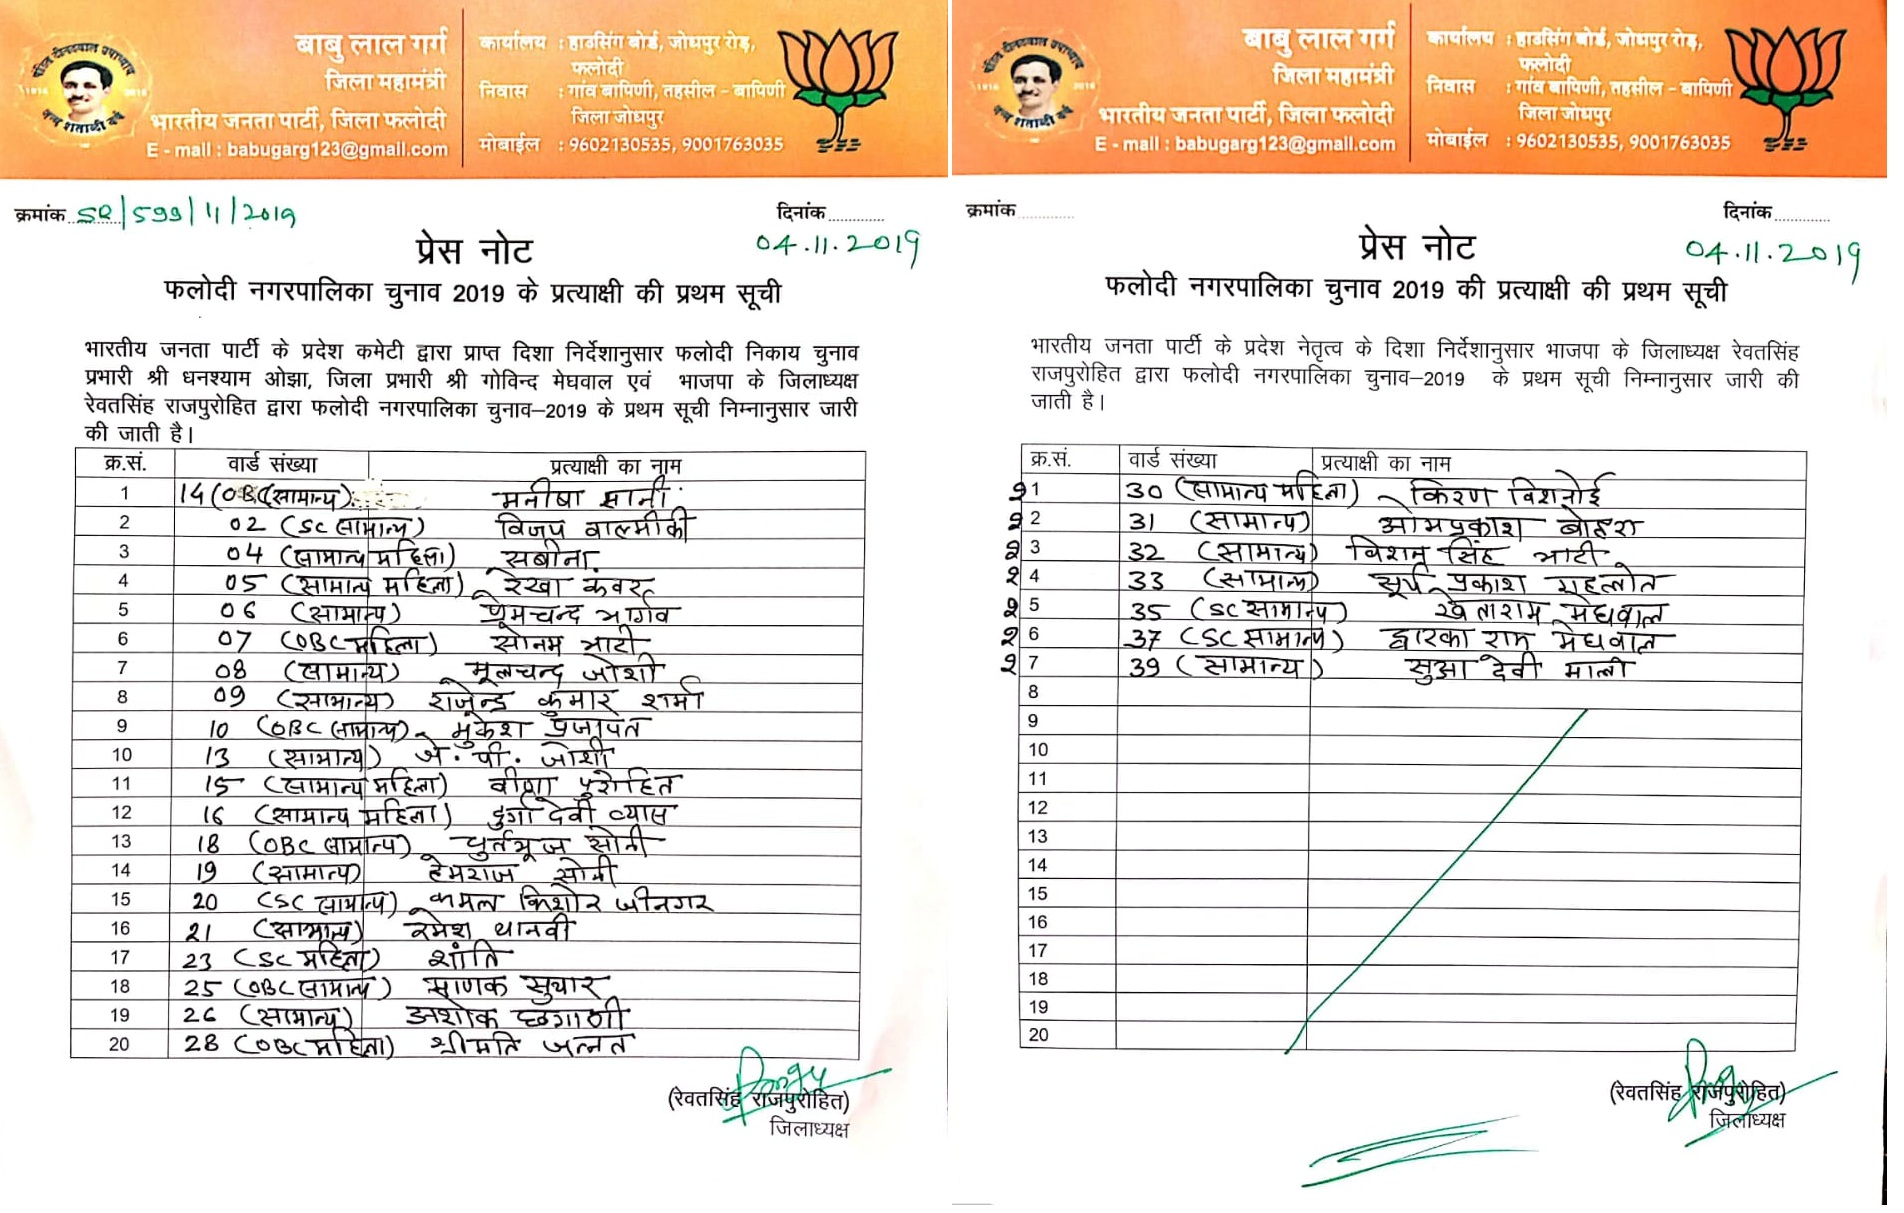 बाबु लाल गर्ग
जिला महामंत्री
भारतीय जनता पार्टी, जिला फलोदी
E - mail : babugarg123@gmail.com
कार्यालय : हाउसिंग बोर्ड, जोधपुर रोड़,
फलोदी
निवास : गांव बापिणी, तहसील - बापिणी
जिला जोधपुर
मोबाईल : 9602130535, 9001763035
क्रमांक SR/599/11/2019
दिनांक
04.11.2019
प्रेस नोट
फलोदी नगरपालिका चुनाव 2019 के प्रत्याक्षी की प्रथम सूची
भारतीय जनता पार्टी के प्रदेश कमेटी द्वारा प्राप्त दिशा निर्देशानुसार फलोदी निकाय चुनाव
प्रभारी श्री धनश्याम ओझा, जिला प्रभारी श्री गोविन्द मेघवाल एवं भाजपा के जिलाध्यक्ष
रेवतसिंह राजपुरोहित द्वारा फलोदी नगरपालिका चुनाव–2019 के प्रथम सूची निम्नानुसार जारी
की जाती है।
क्र.सं. वार्ड संख्या प्रत्याक्षी का नाम
1 14 (OBC सामान्य) मनीषा सोनी
2 02 (SC सामान्य) विजय वाल्मीकी
3 04 (सामान्य महिला) सबीना
4 05 (सामान्य महिला) रेखा कंवर
5 06 (सामान्य) प्रेमचन्द भार्गव
6 07 (OBC महिला) सोनम भाटी
7 08 (सामान्य) मूलचन्द जोशी
8 09 (सामान्य) राजेन्द्र कुमार शर्मा
9 10 (OBC सामान्य) मुकेश प्रजापत
10 13 (सामान्य) जे. पी. जोशी
11 15 (सामान्य महिला) वीणा पुरोहित
12 16 (सामान्य महिला) दुर्गा देवी व्यास
13 18 (OBC सामान्य) चुर्तभूज सोनी
14 19 (सामान्य) हेमराज सोनी
15 20 (SC सामान्य) कमल किशोर जीनगर
16 21 (सामान्य) रमेश थानवी
17 23 (SC महिला) शांति
18 25 (OBC सामान्य) माणक सुथार
19 26 (सामान्य) अशोक छंगाणी
20 28 (OBC महिला) श्रीमति जन्नत
(रेवतसिंह राजपुरोहित)
जिलाध्यक्ष
बाबु लाल गर्ग
जिला महामंत्री
भारतीय जनता पार्टी, जिला फलोदी
E - mail : babugarg123@gmail.com
कार्यालय : हाउसिंग बोर्ड, जोधपुर रोड़,
फलोदी
निवास : गांव बापिणी, तहसील - बापिणी
जिला जोधपुर
मोबाईल : 9602130535, 9001763035
क्रमांक
दिनांक
04.11.2019
प्रेस नोट
फलोदी नगरपालिका चुनाव 2019 की प्रत्याक्षी की प्रथम सूची
भारतीय जनता पार्टी के प्रदेश नेतृत्व के दिशा निर्देशानुसार भाजपा के जिलाध्यक्ष रेवतसिंह
राजपुरोहित द्वारा फलोदी नगरपालिका चुनाव–2019 के प्रथम सूची निम्नानुसार जारी की
जाती है।
क्र.सं. वार्ड संख्या प्रत्याक्षी का नाम
21 30 (सामान्य महिला) किरण विश्नोई
22 31 (सामान्य) ओमप्रकाश बोहरा
23 32 (सामान्य) विशन सिंह भाटी
24 33 (सामान्य) सूर्य प्रकाश गहलोत
25 35 (SC सामान्य) खेताराम मेघवाल
26 37 (SC सामान्य) द्वारका राम मेघवाल
27 39 (सामान्य) सुआ देवी माली
8
9
10
11
12
13
14
15
16
17
18
19
20
(रेवतसिंह राजपुरोहित)
जिलाध्यक्ष